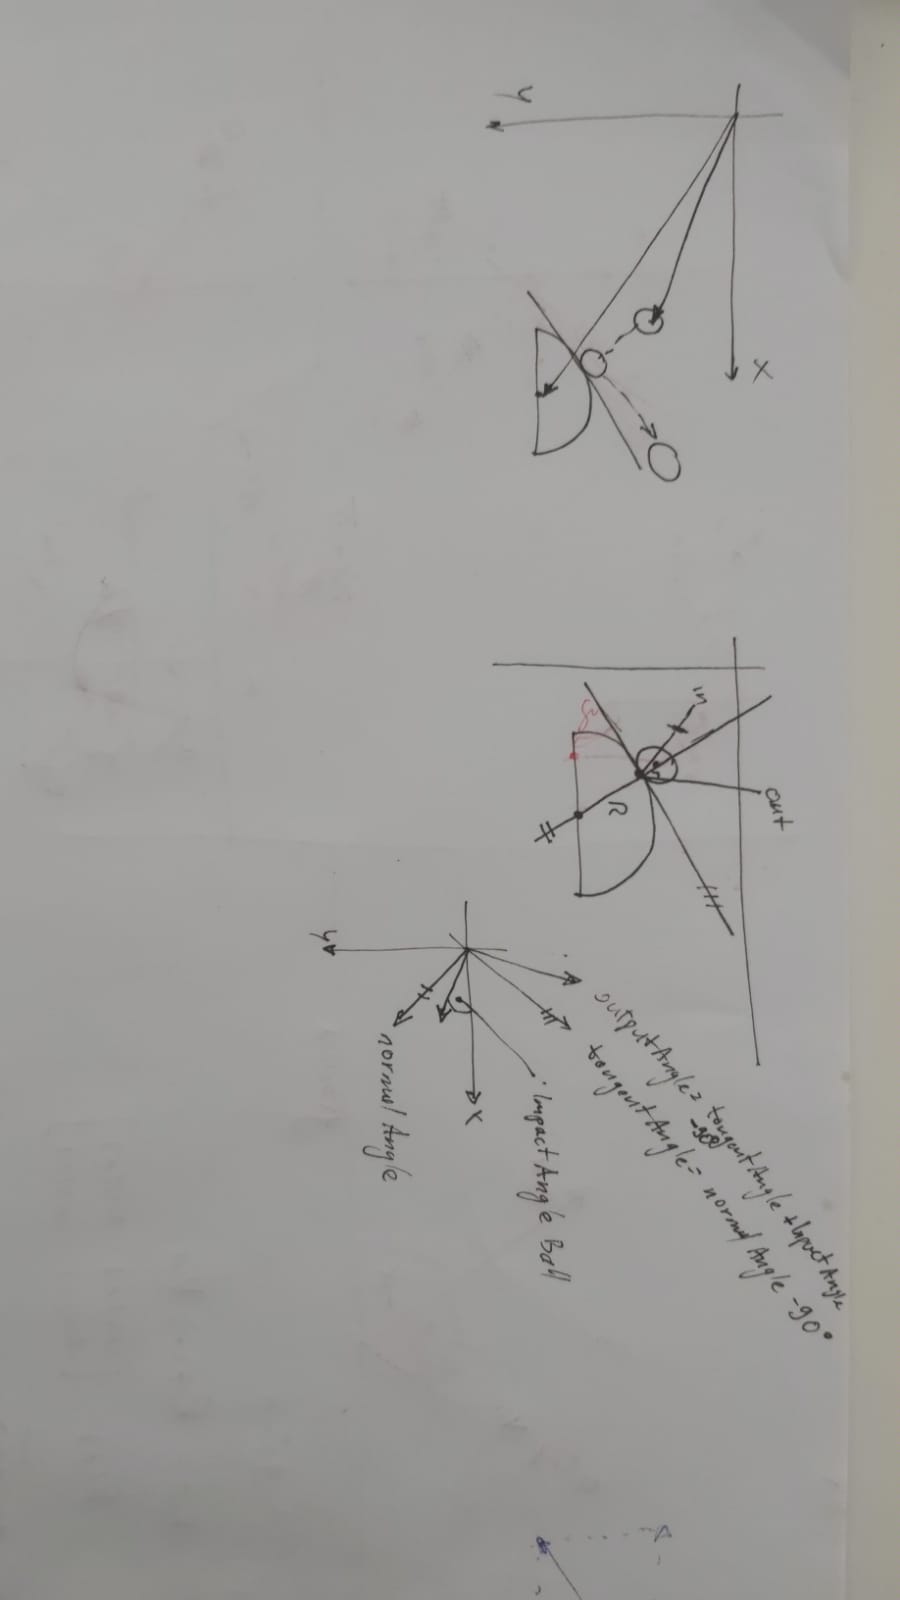 Y
X
in
out
R
Y
X
outputAngle= tangentAngle + ImpactAngle
-90°
tangentAngle= normalAngle -90°
ImpactAngle Ball
normalAngle